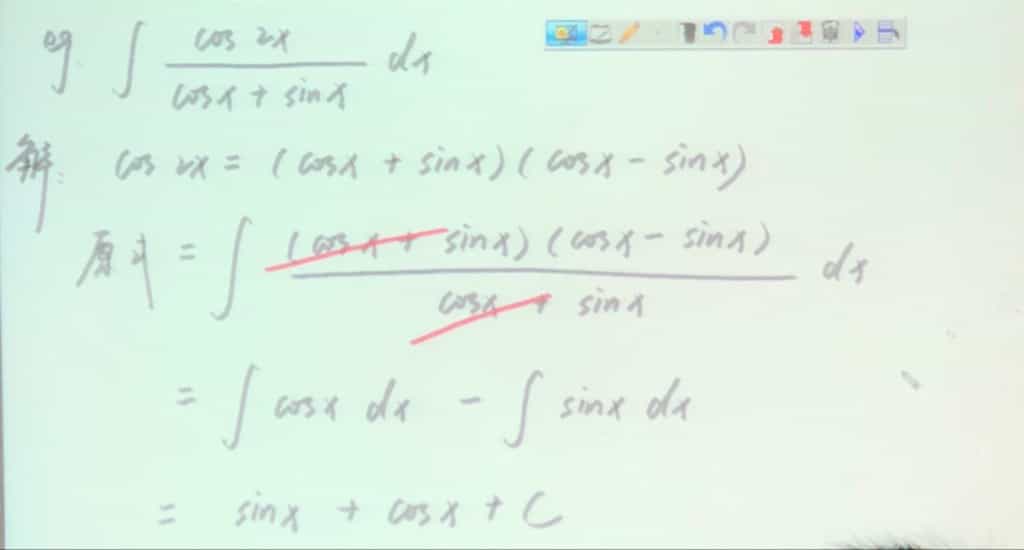 eg. ∫ cos 2x / (cosx + sinx) dx
解: cos 2x = (cosx + sinx)(cosx - sinx)
原式 = ∫ (cosx + sinx)(cosx - sinx) / (cosx + sinx) dx
= ∫ cosx dx - ∫ sinx dx
= sinx + cosx + C